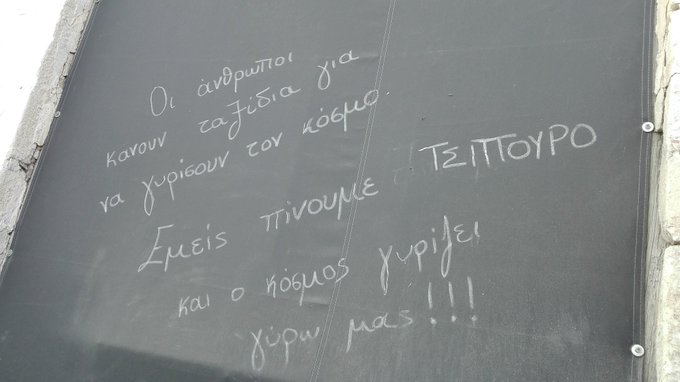 Οι άνθρωποι
κανουν ταξίδια για
να γυρίσουν τον κόσμο.
Εμείς πίνουμε ΤΣΙΠΟΥΡΟ
και ο κόσμος γυρίζει
γύρω μας!!!